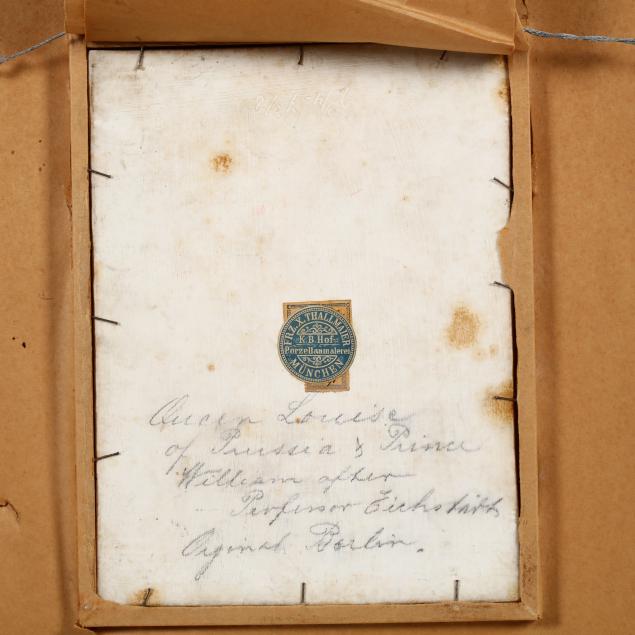 FRZ. X. THALLMAIER
K. B. Hof-
Porzellanmalerei
MÜNCHEN
Queen Louise
of Prussia & Prince
William after
Professor Eichstädt
Orginal Berlin.